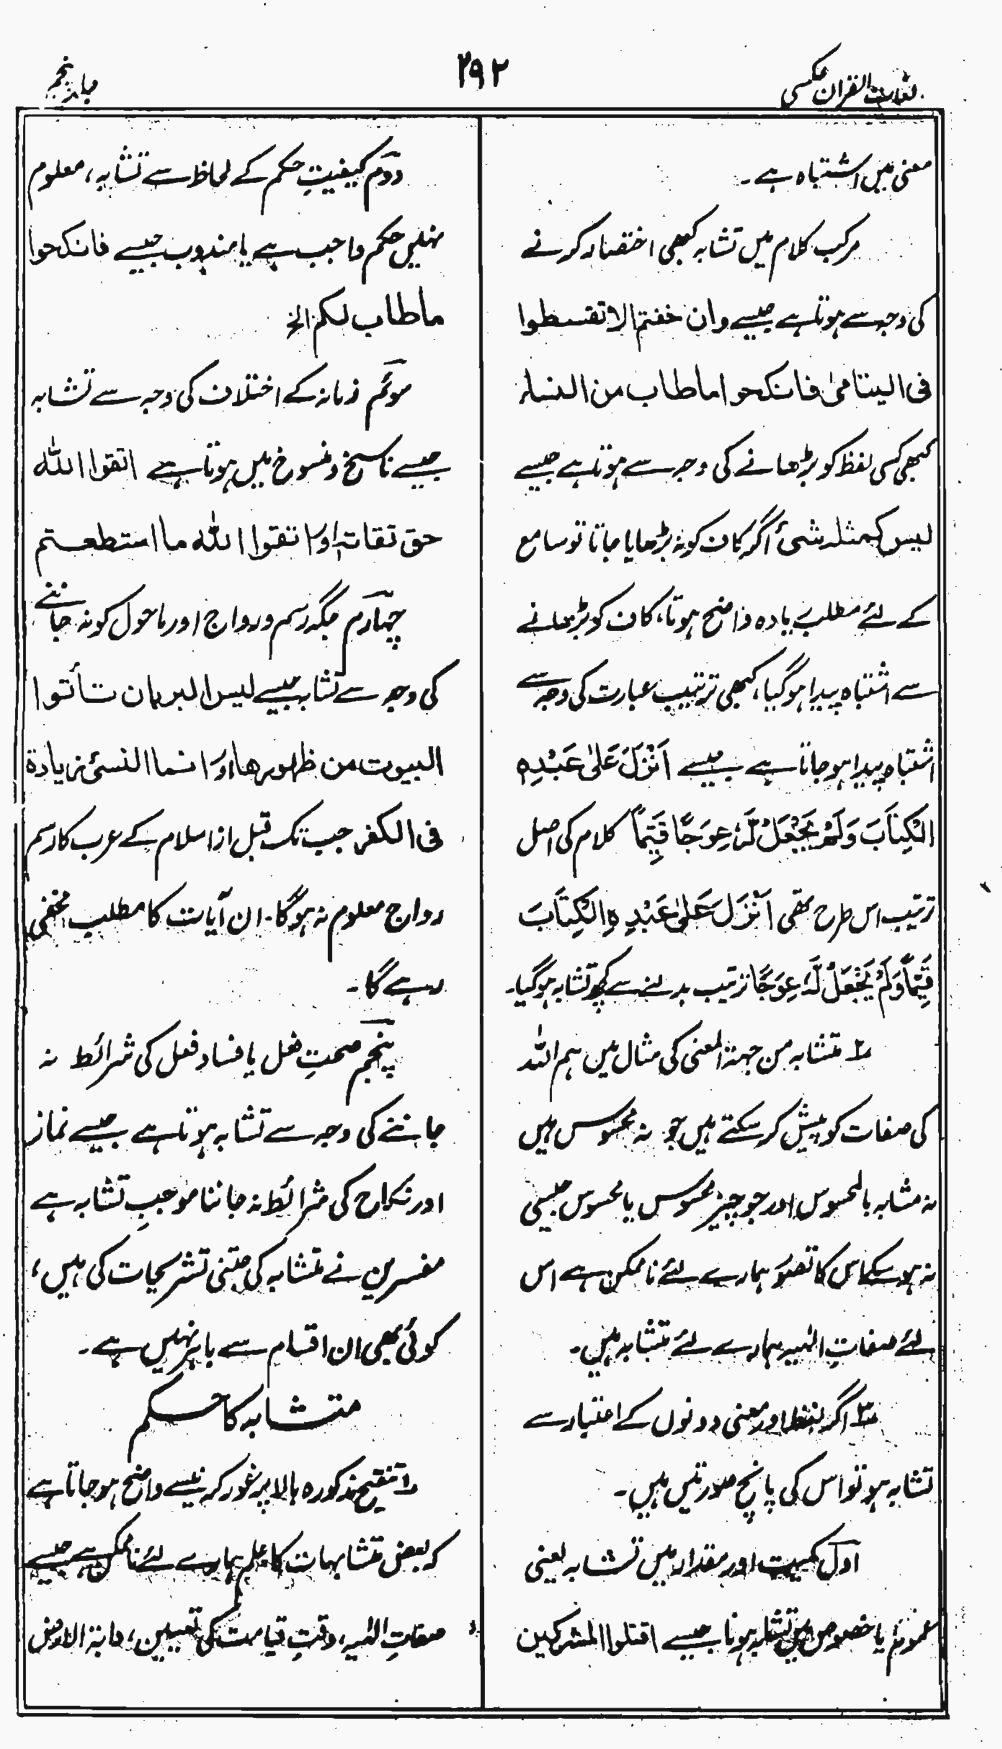 لغات القرآن عکسی
۲۹۲
جلد پنجم
معنی میں اشتباہ ہے۔
مرکب کلام میں تشابہ کبھی اختصار کرنے
کی وجہ سے ہوتا ہے جیسے وان خفتم الا تقسطوا
فی الیتامیٰ فانکحوا ما طاب من النساء
کبھی کسی لفظ کو بڑھانے کی وجہ سے ہوتا ہے جیسے
لیس کمثلہ شیٔ اگر کاف کو نہ بڑھایا جاتا تو سامع
کے لئے مطلب زیادہ واضح ہوتا، کاف کو بڑھانے
سے اشتباہ پیدا ہوگیا، کبھی ترتیب عبارت کی وجہ سے
اشتباہ پیدا ہوجاتا ہے جیسے اَنْزَلَ عَلٰی عَبْدِہِ
الْکِتَابَ وَلَمْ یَجْعَلْ لَّہٗ عِوَجًا قَیِّمًا کلام کی اصل
ترتیب اس طرح تھی اَنْزَلَ عَلٰی عَبْدِہِ الْکِتَابَ
قَیِّمًا وَلَمْ یَجْعَلْ لَّہٗ عِوَجًا ترتیب بدلنے سے کچھ تشابہ ہوگیا۔
۲؎ متشابہ من جہۃ المعنی کی مثال میں ہم اللہ
کی صفات کو پیش کرسکتے ہیں جو نہ محسوس ہیں
نہ مشابہ بالمحسوس اور جو چیز محسوس یا محسوس جیسی
نہ ہو سکے اس کا تصور ہمارے لئے ناممکن ہے اس
لئے صفاتِ الٰہیہ ہمارے لئے متشابہ ہیں۔
۳؎ اگر لفظ اور معنی دونوں کے اعتبار سے
تشابہ ہو تو اس کی پانچ صورتیں ہیں۔
اول کمیت اور مقدار میں تشابہ یعنی
عموم یا خصوص میں تشابہ ہونا جیسے اقتلوا المشرکین
دوم کیفیتِ حکم کے لحاظ سے تشابہ، معلوم
نہیں حکم واجب ہے یا مندوب جیسے فانکحوا
ما طاب لکم الخ
سوئم زمانہ کے اختلاف کی وجہ سے تشابہ
جیسے ناسخ و منسوخ میں ہوتا ہے اتقوا اللہ
حق تقاتہ اور اتقوا اللہ ما استطعتم
چہارم جگہ رسم و رواج اور ماحول کو نہ جاننے
کی وجہ سے تشابہ جیسے لیس البر بان تأتوا
البیوت من ظہورھا اور انما النسیٔ زیادۃ
فی الکفر جب تک قبل از اسلام کے عرب کا رسم
رواج معلوم نہ ہوگا۔ ان آیات کا مطلب مخفی
رہے گا۔
پنجم صحتِ فعل یا فساد فعل کی شرائط نہ
جاننے کی وجہ سے تشابہ ہوتا ہے جیسے نماز
اور نکاح کی شرائط نہ جاننا موجبِ تشابہ ہے
مفسرین نے متشابہ کی جتنی تشریحات کی ہیں،
کوئی بھی ان اقسام سے باہر نہیں ہے۔
متشابہ کا حکم
۱؎ تنقیح مذکورہ بالا پر غور کرنے سے واضح ہوجاتا ہے
کہ بعض متشابہات کا علم ہمارے لئے ناممکن ہے جیسے
صفاتِ الٰہیہ، وقتِ قیامت کی تعیین، دابۃ الارض